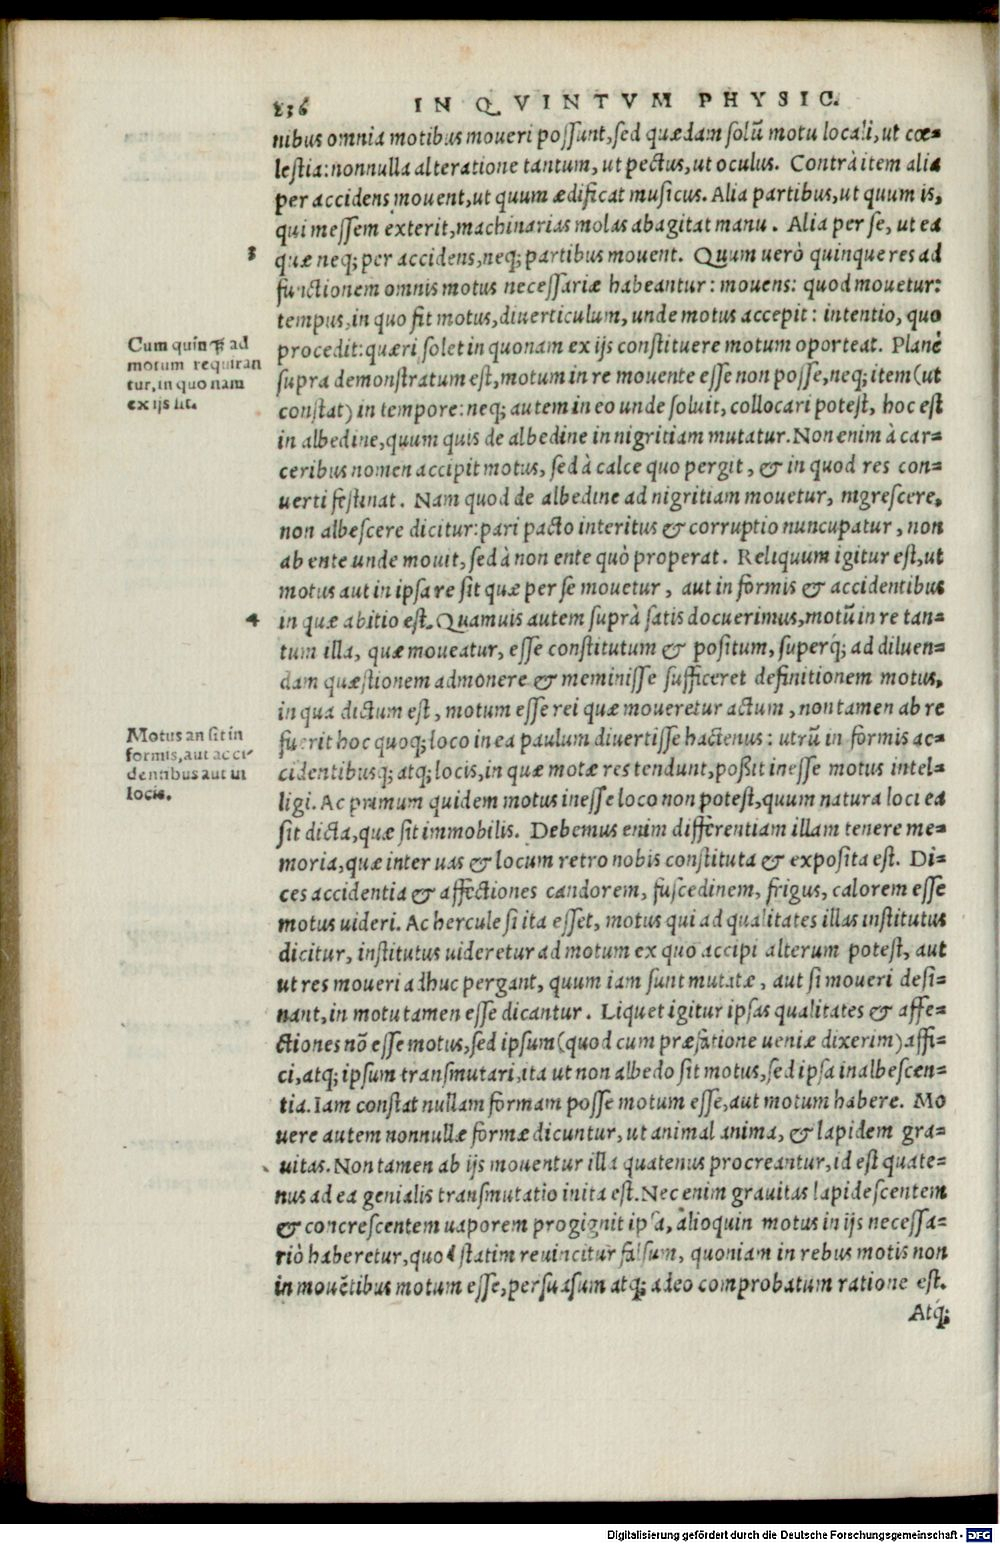 236 IN QVINTVM PHYSIC.
nibus omnia motibus moueri possunt, sed quædam solũ motu locali, ut cœ-
lestia: nonnulla alteratione tantum, ut pectus, ut oculus. Contrà item alia
per accidens mouent, ut quum ædificat musicus. Alia partibus, ut quum is,
qui messem exterit, machinarias molas abagitat manu. Alia per se, ut ea
3 quæ neq; per accidens, neq; partibus mouent. Quum uerò quinque res ad
functionem omnis motus necessariæ habeantur: mouens: quod mouetur:
tempus, in quo fit motus, diuerticulum, unde motus accepit: intentio, quo
Cum quinq; ad
motum requiran
tur, in quo nam
ex ijs sit.
procedit: quæri solet in quonam ex ijs constituere motum oporteat. Planè
supra demonstratum est, motum in re mouente esse non posse, neq; item (ut
constat) in tempore: neq; autem in eo unde soluit, collocari potest, hoc est
in albedine, quum quis de albedine in nigritiam mutatur. Non enim à car-
ceribus nomen accipit motus, sed à calce quo pergit, & in quod res con-
uerti festinat. Nam quod de albedine ad nigritiam mouetur, nigrescere,
non albescere dicitur: pari pacto interitus & corruptio nuncupatur, non
ab ente unde mouit, sed à non ente quò properat. Reliquum igitur est, ut
motus aut in ipsa re sit quæ per se mouetur, aut in formis & accidentibus
4 in quæ abitio est. Quamuis autem suprà satis docuerimus, motũ in re tan-
tum illa, quæ moueatur, esse constitutum & positum, superq́; ad diluen-
dam quæstionem admonere & meminisse sufficeret definitionem motus,
in qua dictum est, motum esse rei quæ moueretur actum, non tamen ab re
Motus an sit in
formis, aut acci
dentibus aut ui
locis.
fuerit hoc quoq; loco in ea paulum diuertisse hactenus: utrũ in formis ac-
cidentibusq; atq; locis, in quæ motæ res tendunt, poßit inesse motus intel-
ligi. Ac primum quidem motus inesse loco non potest, quum natura loci ea
sit dicta, quæ sit immobilis. Debemus enim differentiam illam tenere me-
moria, quæ inter uas & locum retro nobis constituta & exposita est. Di-
ces accidentia & affectiones candorem, fuscedinem, frigus, calorem esse
motus uideri. Ac hercule si ita esset, motus qui ad qualitates illas institutus
dicitur, institutus uideretur ad motum ex quo accipi alterum potest, aut
ut res moueri adhuc pergant, quum iam sunt mutatæ, aut si moueri desi-
nant, in motu tamen esse dicantur. Liquet igitur ipsas qualitates & affe-
ctiones nõ esse motus, sed ipsum (quod cum præfatione ueniæ dixerim) affi-
ci, atq; ipsum transmutari, ita ut non albedo sit motus, sed ipsa inalbescen-
tia. Iam constat nullam formam posse motum esse, aut motum habere. Mo
uere autem nonnullæ formæ dicuntur, ut animal anima, & lapidem gra-
uitas. Non tamen ab ijs mouentur illa quatenus procreantur, id est quate-
nus ad ea genialis transmutatio inita est. Nec enim grauitas lapidescentem
& concrescentem uaporem progignit ipsa, alioquin motus in ijs necessa-
riò haberetur, quod statim reuincitur falsum, quoniam in rebus motis non
in mouẽtibus motum esse, persuasum atq; adeo comprobatum ratione est.
Atq́;
Digitalisierung gefördert durch die Deutsche Forschungsgemeinschaft - DFG